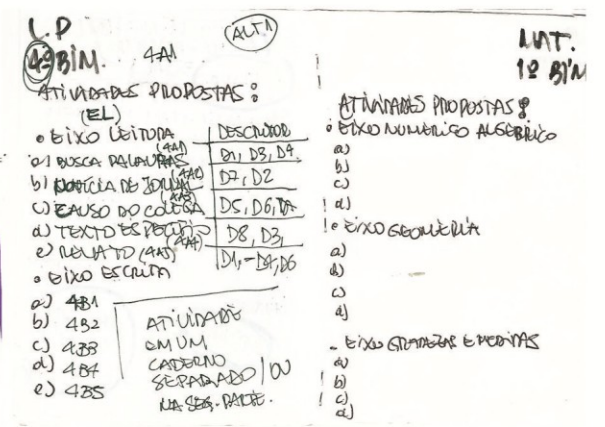 L.P
4º BIM. 4A1 ALT.1
ATIVIDADES PROPOSTAS:
(EL)
• EIXO LEITURA DESCRITOR
a) BUSCA PALAVRAS (4A1) D1, D3, D4
b) NOTÍCIA DE JORNAL (4A2) D7, D2
c) CAUSO DO COLEGA (4A3) D5, D6,
d) TEXTO ESPECÍFICO (4A4) D8, D3,
e) RELATO (4A5) D1, - D4, D6
• EIXO ESCRITA
a) 4B1
b) 4B2
c) 4B3
d) 4B4
e) 4B5
ATIVIDADE
EM UM
CADERNO
SEPARADO / OU
NA SEG. PARTE.
MAT.
1º BIM
ATIVIDADES PROPOSTAS:
• EIXO NUMÉRICO ALGÉBRICO
a)
b)
c)
d)
• EIXO GEOMETRIA
a)
b)
c)
d)
- EIXO GRANDEZAS E MEDIDAS
a)
b)
c)
d)